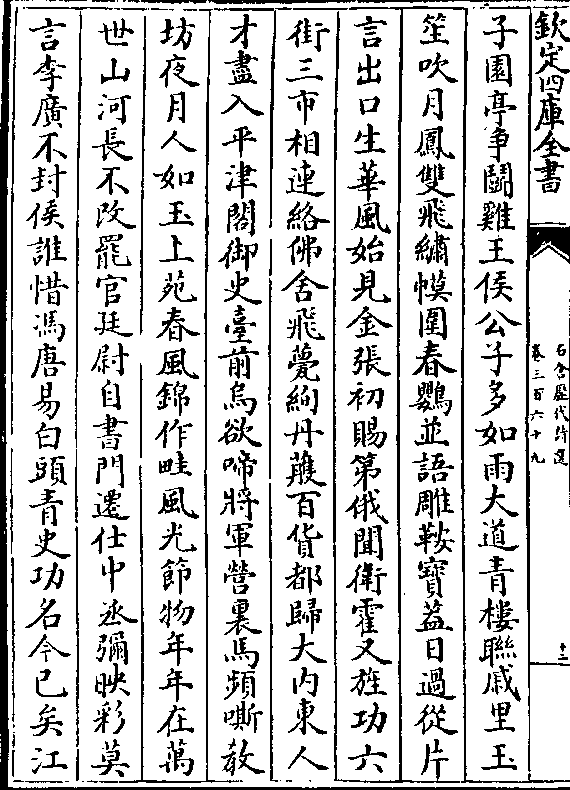 欽定四庫全書
石倉歷代詩選
卷三百六十九
十二
子園亭爭鬭雞王侯公子多如雨大道青樓聯戚里玉
笙吹月鳳雙飛繡幙圍春鸚並語雕鞍寳葢日過從片
言出口生華風始見金張初賜第俄聞衛霍又旌功六
街三市相連絡佛舍飛甍絢丹雘百貨都歸大内東人
才盡入平津閣御史臺前烏欲啼將軍營裏馬頻嘶教
坊夜月人如玉上苑春風錦作畦風光節物年年在萬
世山河長不改罷官廷尉自書門遷仕中丞彌映彩莫
言李廣不封侯誰惜馮唐易白頭青史功名今已矣江